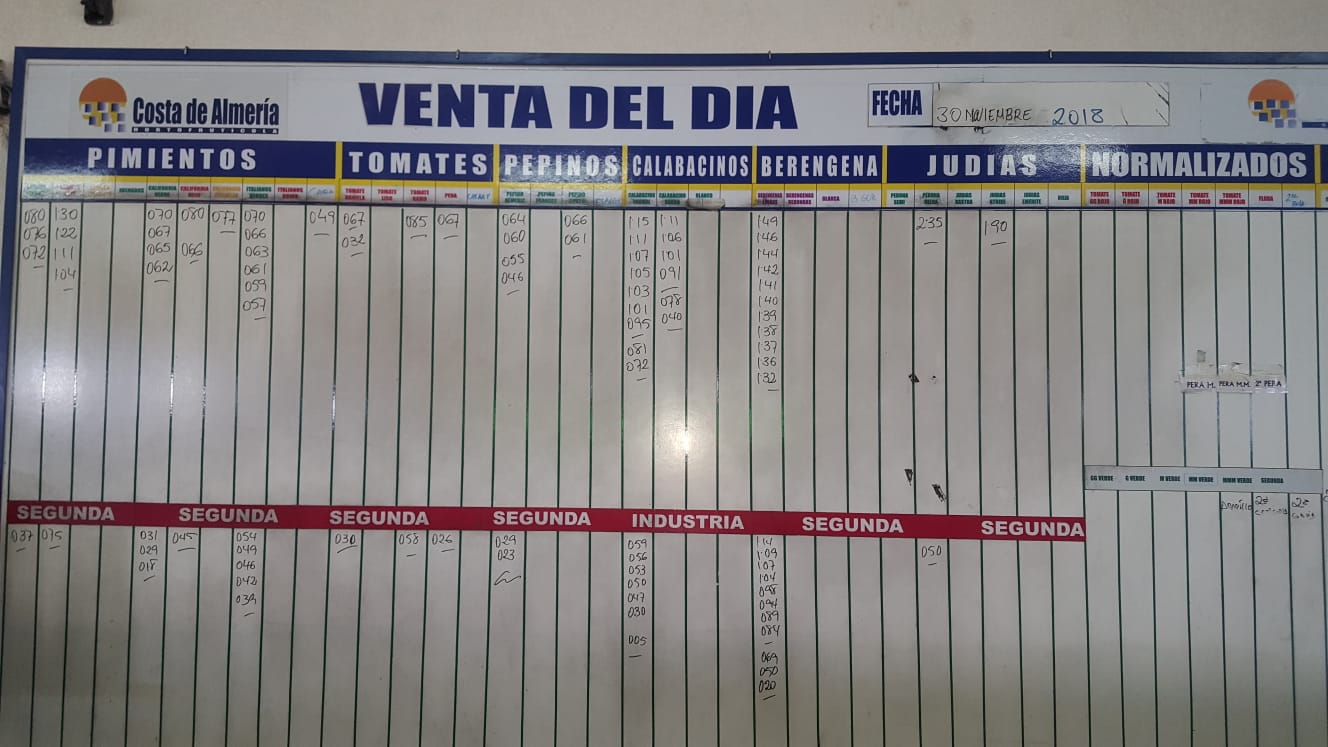 Costa de Almería
HORTOFRUTICOLA
VENTA DEL DIA
FECHA
30 NOVIEMBRE 2018
PIMIENTOS TOMATES PEPINOS CALABACINOS BERENGENA JUDIAS NORMALIZADOS
080 130 070 080 077 070 049 067 085 067 064 066 115 111 149 235 190
076 122 067 066 032 060 061 111 106 146
072 111 065 066 063 055 107 101 144
104 062 061 046 105 091 142
059 103 078 141
057 101 040 140
095 139
081 138
072 137
136
132
PERA M. PERA M.M. 2ª PERA
GG VERDE G VERDE M VERDE MM VERDE MMM VERDE SEGUNDA
SEGUNDA SEGUNDA SEGUNDA SEGUNDA INDUSTRIA SEGUNDA SEGUNDA
037 075 031 045 054 030 058 026 029 059 114 050
029 049 023 056 109
018 046 053 107
042 050 104
039 047 098
030 094
005 089
084
069
050
020